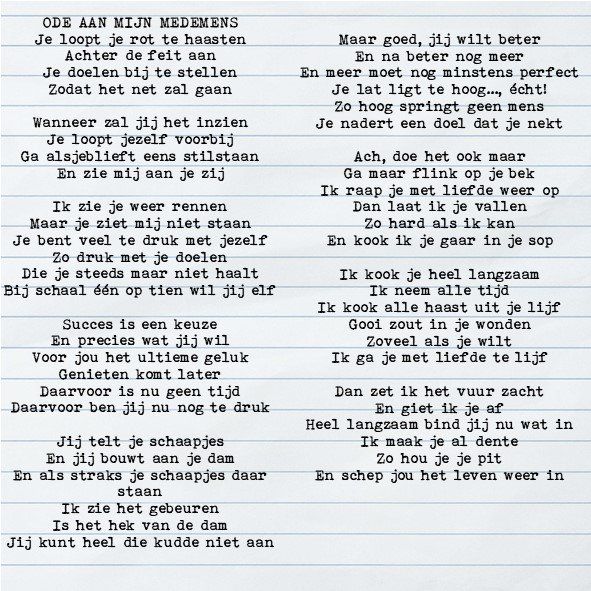 ODE AAN MIJN MEDEMENS
Je loopt je rot te haasten
Achter de feit aan
Je doelen bij te stellen
Zodat het net zal gaan

Wanneer zal jij het inzien
Je loopt jezelf voorbij
Ga alsjeblieft eens stilstaan
En zie mij aan je zij

Ik zie je weer rennen
Maar je ziet mij niet staan
Je bent veel te druk met jezelf
Zo druk met je doelen
Die je steeds maar niet haalt
Bij schaal één op tien wil jij elf

Succes is een keuze
En precies wat jij wil
Voor jou het ultieme geluk
Genieten komt later
Daarvoor is nu geen tijd
Daarvoor ben jij nu nog te druk

Jij telt je schaapjes
En jij bouwt aan je dam
En als straks je schaapjes daar
staan
Ik zie het gebeuren
Is het hek van de dam
Jij kunt heel die kudde niet aan

Maar goed, jij wilt beter
En na beter nog meer
En meer moet nog minstens perfect
Je lat ligt te hoog..., écht!
Zo hoog springt geen mens
Je nadert een doel dat je nekt

Ach, doe het ook maar
Ga maar flink op je bek
Ik raap je met liefde weer op
Dan laat ik je vallen
Zo hard als ik kan
En kook ik je gaar in je sop

Ik kook je heel langzaam
Ik neem alle tijd
Ik kook alle haast uit je lijf
Gooi zout in je wonden
Zoveel als je wilt
Ik ga je met liefde te lijf

Dan zet ik het vuur zacht
En giet ik je af
Heel langzaam bind jij nu wat in
Ik maak je al dente
Zo hou je je pit
En schep jou het leven weer in